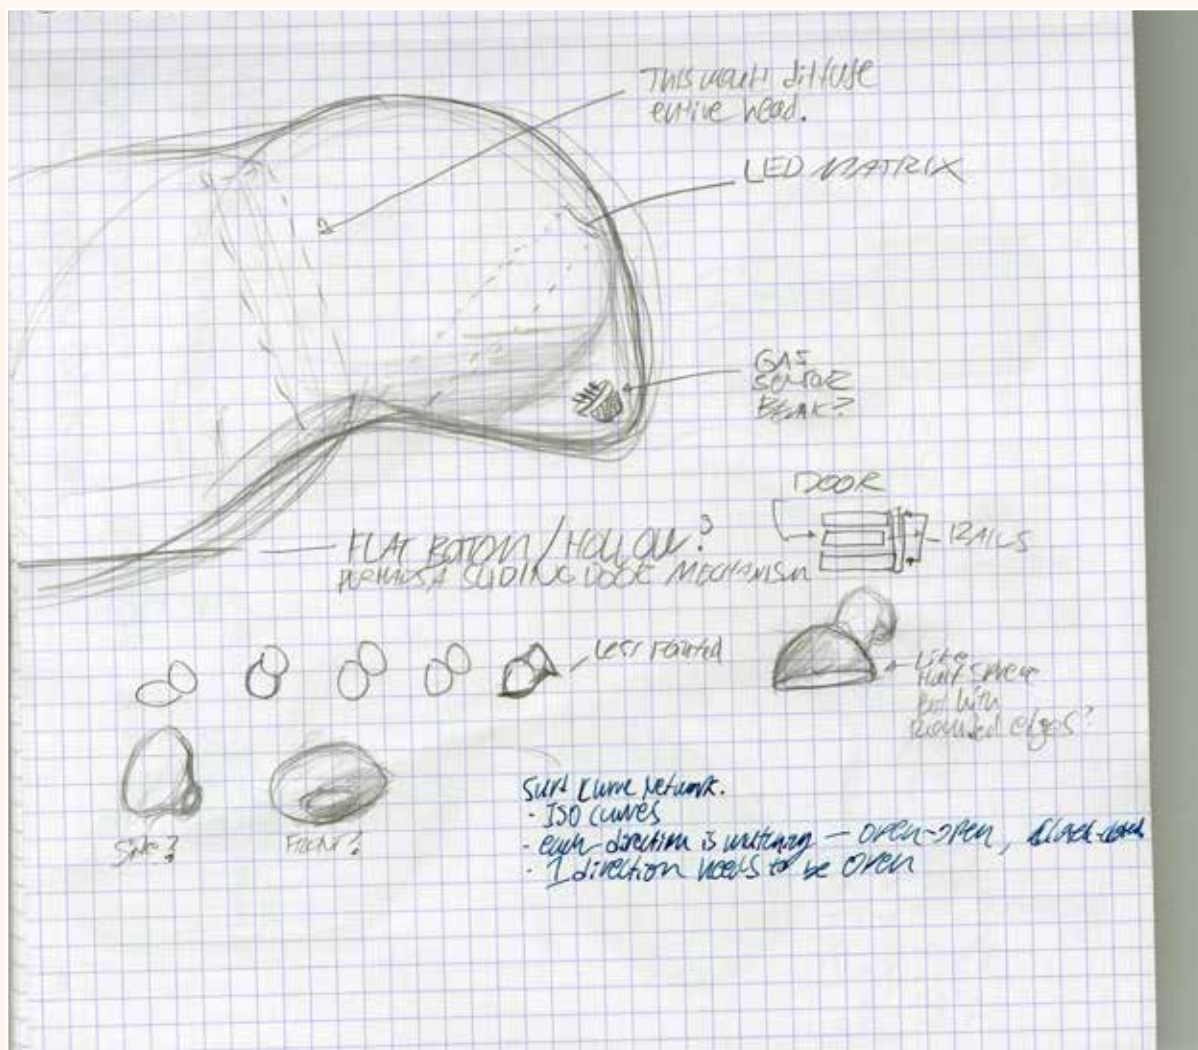 This would diffuse
entire head.
LED MATRIX
GAS
SENSOR
BEAK?
DOOR
RAILS
FLAT BOTTOM/HOLLOW?
PERHAPS A SLIDING DOOR MECHANISM
Less Pointed
Like
Half Sphere
but with
Rounded edges?
Side?
FRONT?
Surf Curve Network.
- ISO curves
- each direction is matching — open-open, closed-closed
- 1 direction needs to be open